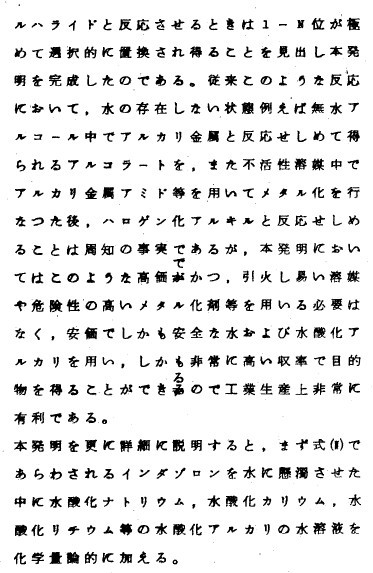 ルハライドと反応させるときは1-N位が極
めて選択的に置換され得ることを見出し本発
明を完成したのである。従来このような反応
において，水の存在しない状態例えば無水ア
ルコール中でアルカリ金属と反応せしめて得
られるアルコラートを，また不活性溶媒中で
アルカリ金属アミド等を用いてメタル化を行
なつた後，ハロゲン化アルキルと反応せしめ
ることは周知の事実であるが，本発明におい
てはこのような高価でかつ，引火し易い溶媒
や危険性の高いメタル化剤等を用いる必要は
なく，安価でしかも安全な水および水酸化ア
ルカリを用い，しかも非常に高い収率で目的
物を得ることができるので工業生産上非常に
有利である。
本発明を更に詳細に説明すると，まず式(Ⅳ)で
あらわされるインダゾロンを水に懸濁させた
中に水酸化ナトリウム，水酸化カリウム，水
酸化リチウム等の水酸化アルカリの水溶液を
化学量論的に加える。